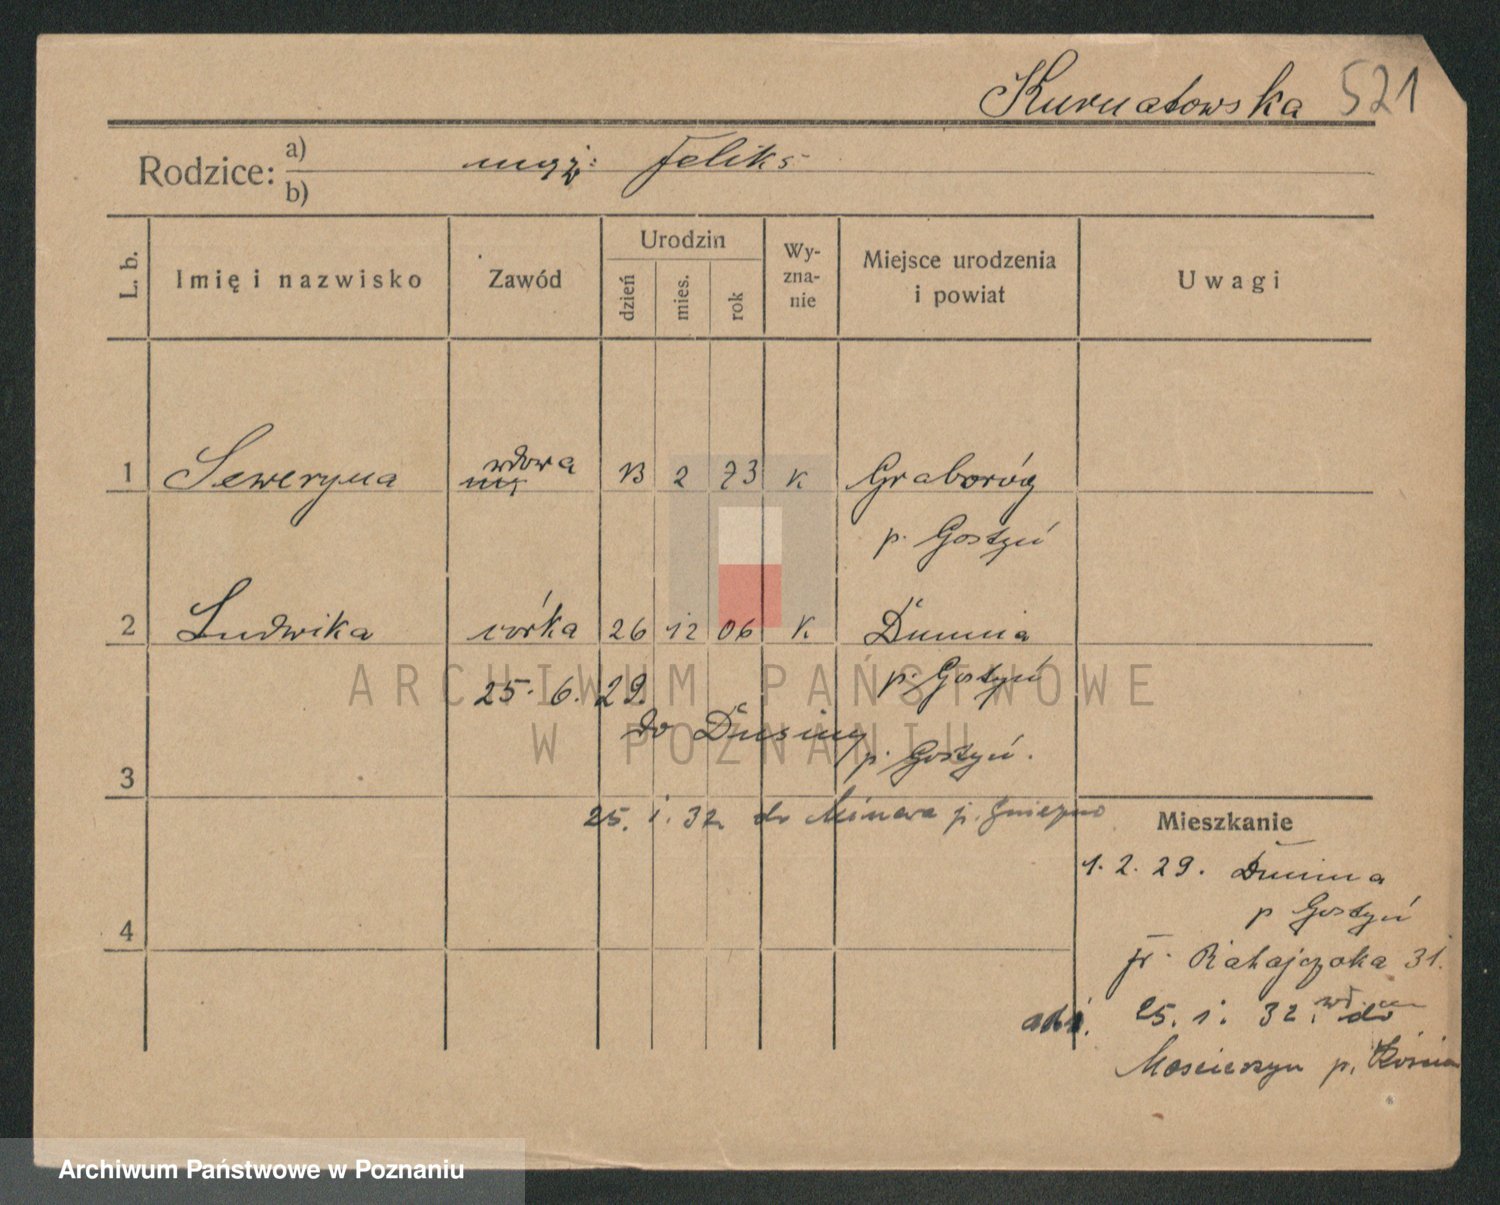 Kurnatowska 521
Rodzice: a) mąż: Feliks
b)
L. b. Imię i nazwisko Zawód Urodzin dzień mies. rok Wy-zna-nie Miejsce urodzenia i powiat Uwagi
wdowa
1 Seweryna 13 2 73 K Graboróg
p. Gostyń
2 Ludwika córka 26 12 06 K Dusina
p. Gostyń
25. 6. 29.
do Dusiny p. Gostyń.
3
25. 1. 32 do p. Gniezno
Mieszkanie
1. 2. 29. Dusina
p Gostyń
4
Fr. Ratajczaka 31.
25. 1. 32. do
p.
ARCHIWUM PAŃSTWOWE
W POZNANIU
Archiwum Państwowe w Poznaniu